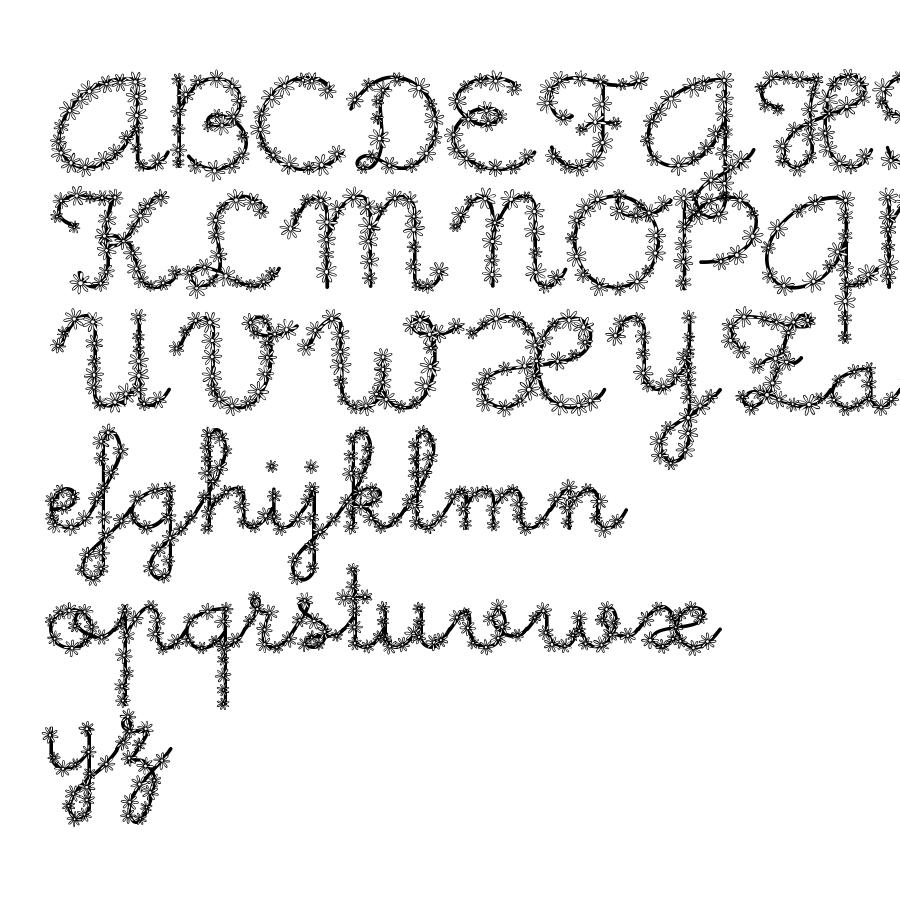 ABCDEFGH
KLMNOPQ
UVWXYZa
efghijklmn
opqrstuvwx
yz